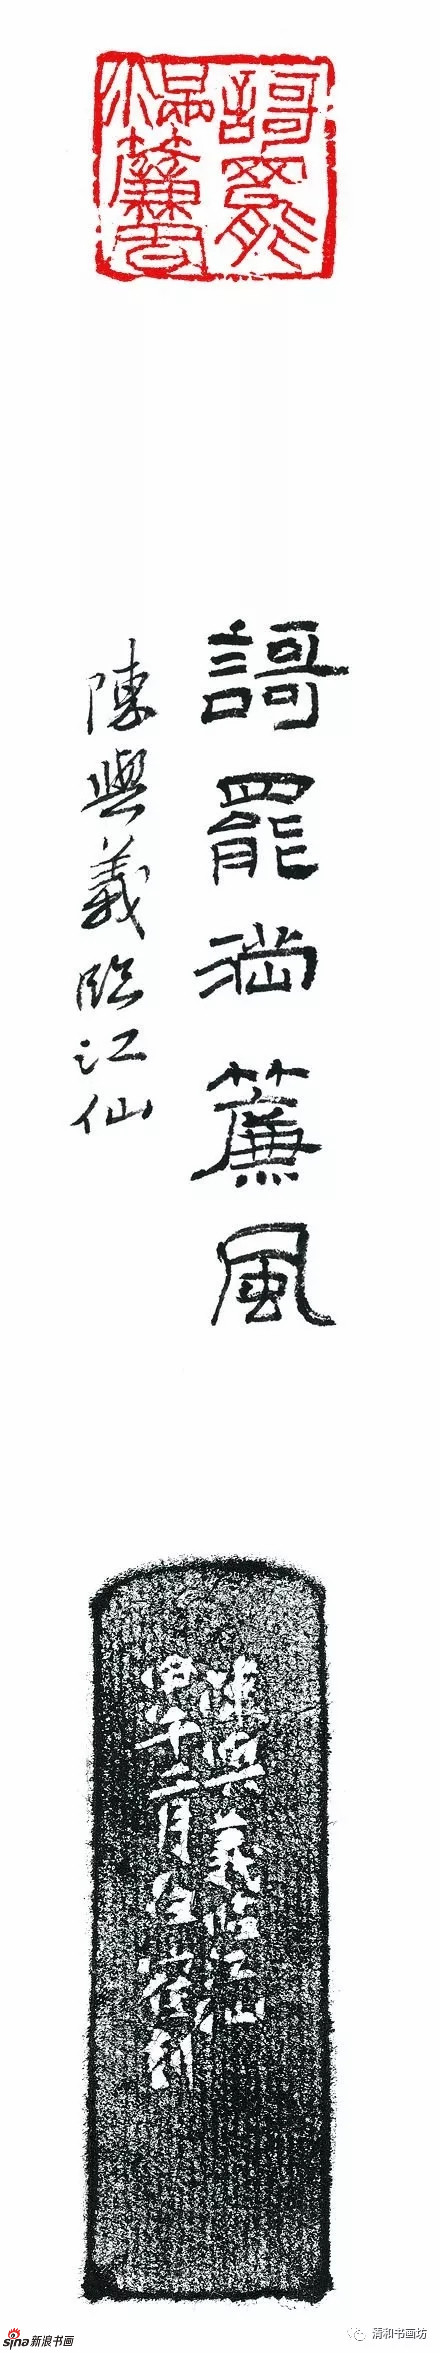 謌罷
滿簾風
謌罷滿簾風
陳與義臨江仙
陳與義臨江仙
甲午二月刻
sina新浪书画
清和书画坊